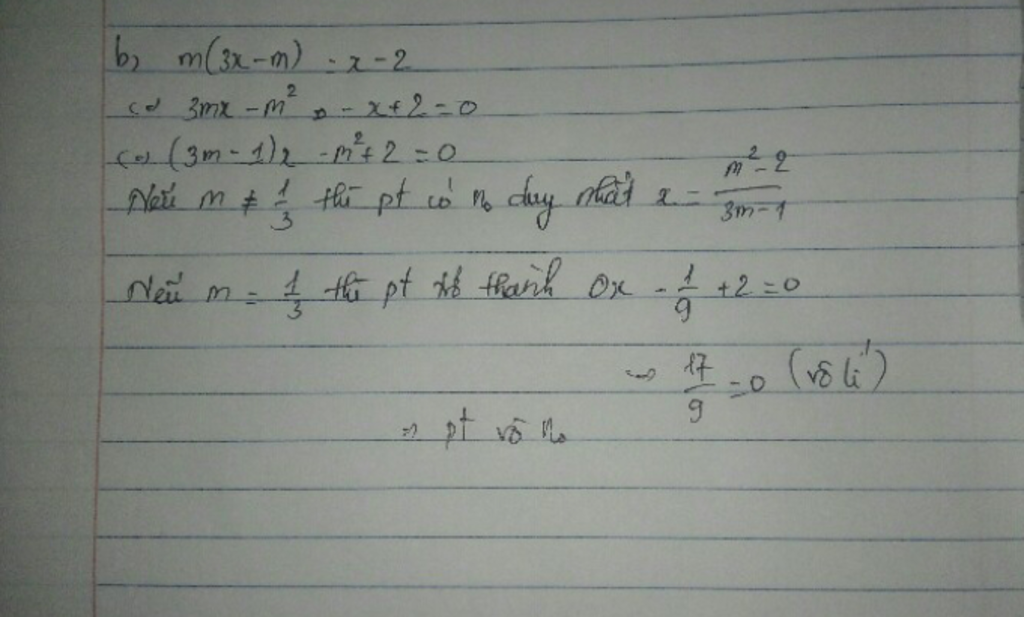 b, m(3x-m) = x-2
<=> 3mx - m² - x + 2 = 0
<=> (3m-1)x - m² + 2 = 0
Nếu m ≠ 1/3 thì pt có n₀ duy nhất x = (m²-2)/(3m-1)
Nếu m = 1/3 thì pt trở thành 0x - 1/9 + 2 = 0
<=> 17/9 = 0 (vô lí)
=> pt vô n₀